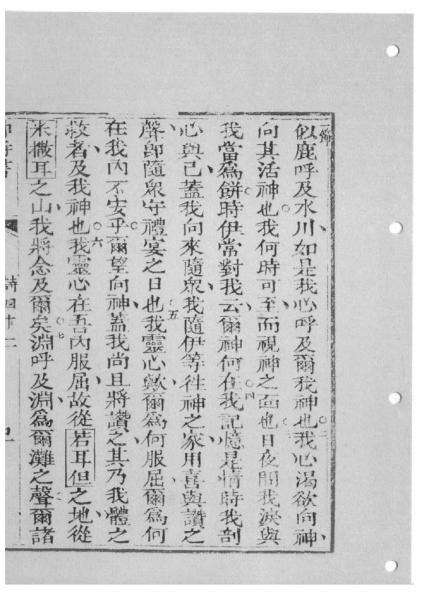 一節
似鹿呼及水川如是我心呼及爾我神也二我心渴欲向神
向其活神也我何時可至而視神之面也三日夜間我淚與
我當為餅時伊常對我云爾神何在四我記憶是情時我剖
心與己蓋我向來隨眾我隨伊等往神之家用喜與讚之
聲即隨眾守禮宴之日也五我靈心歟爾為何服屈爾為何
在我內不安乎爾望向神蓋我尚且將讚之其乃我體之
救者及我神也六我靈心在吾內服屈故從若耳但之地從
米撒耳之山我將念及爾矣七淵呼及淵為爾灘之聲爾諸
詩四十二